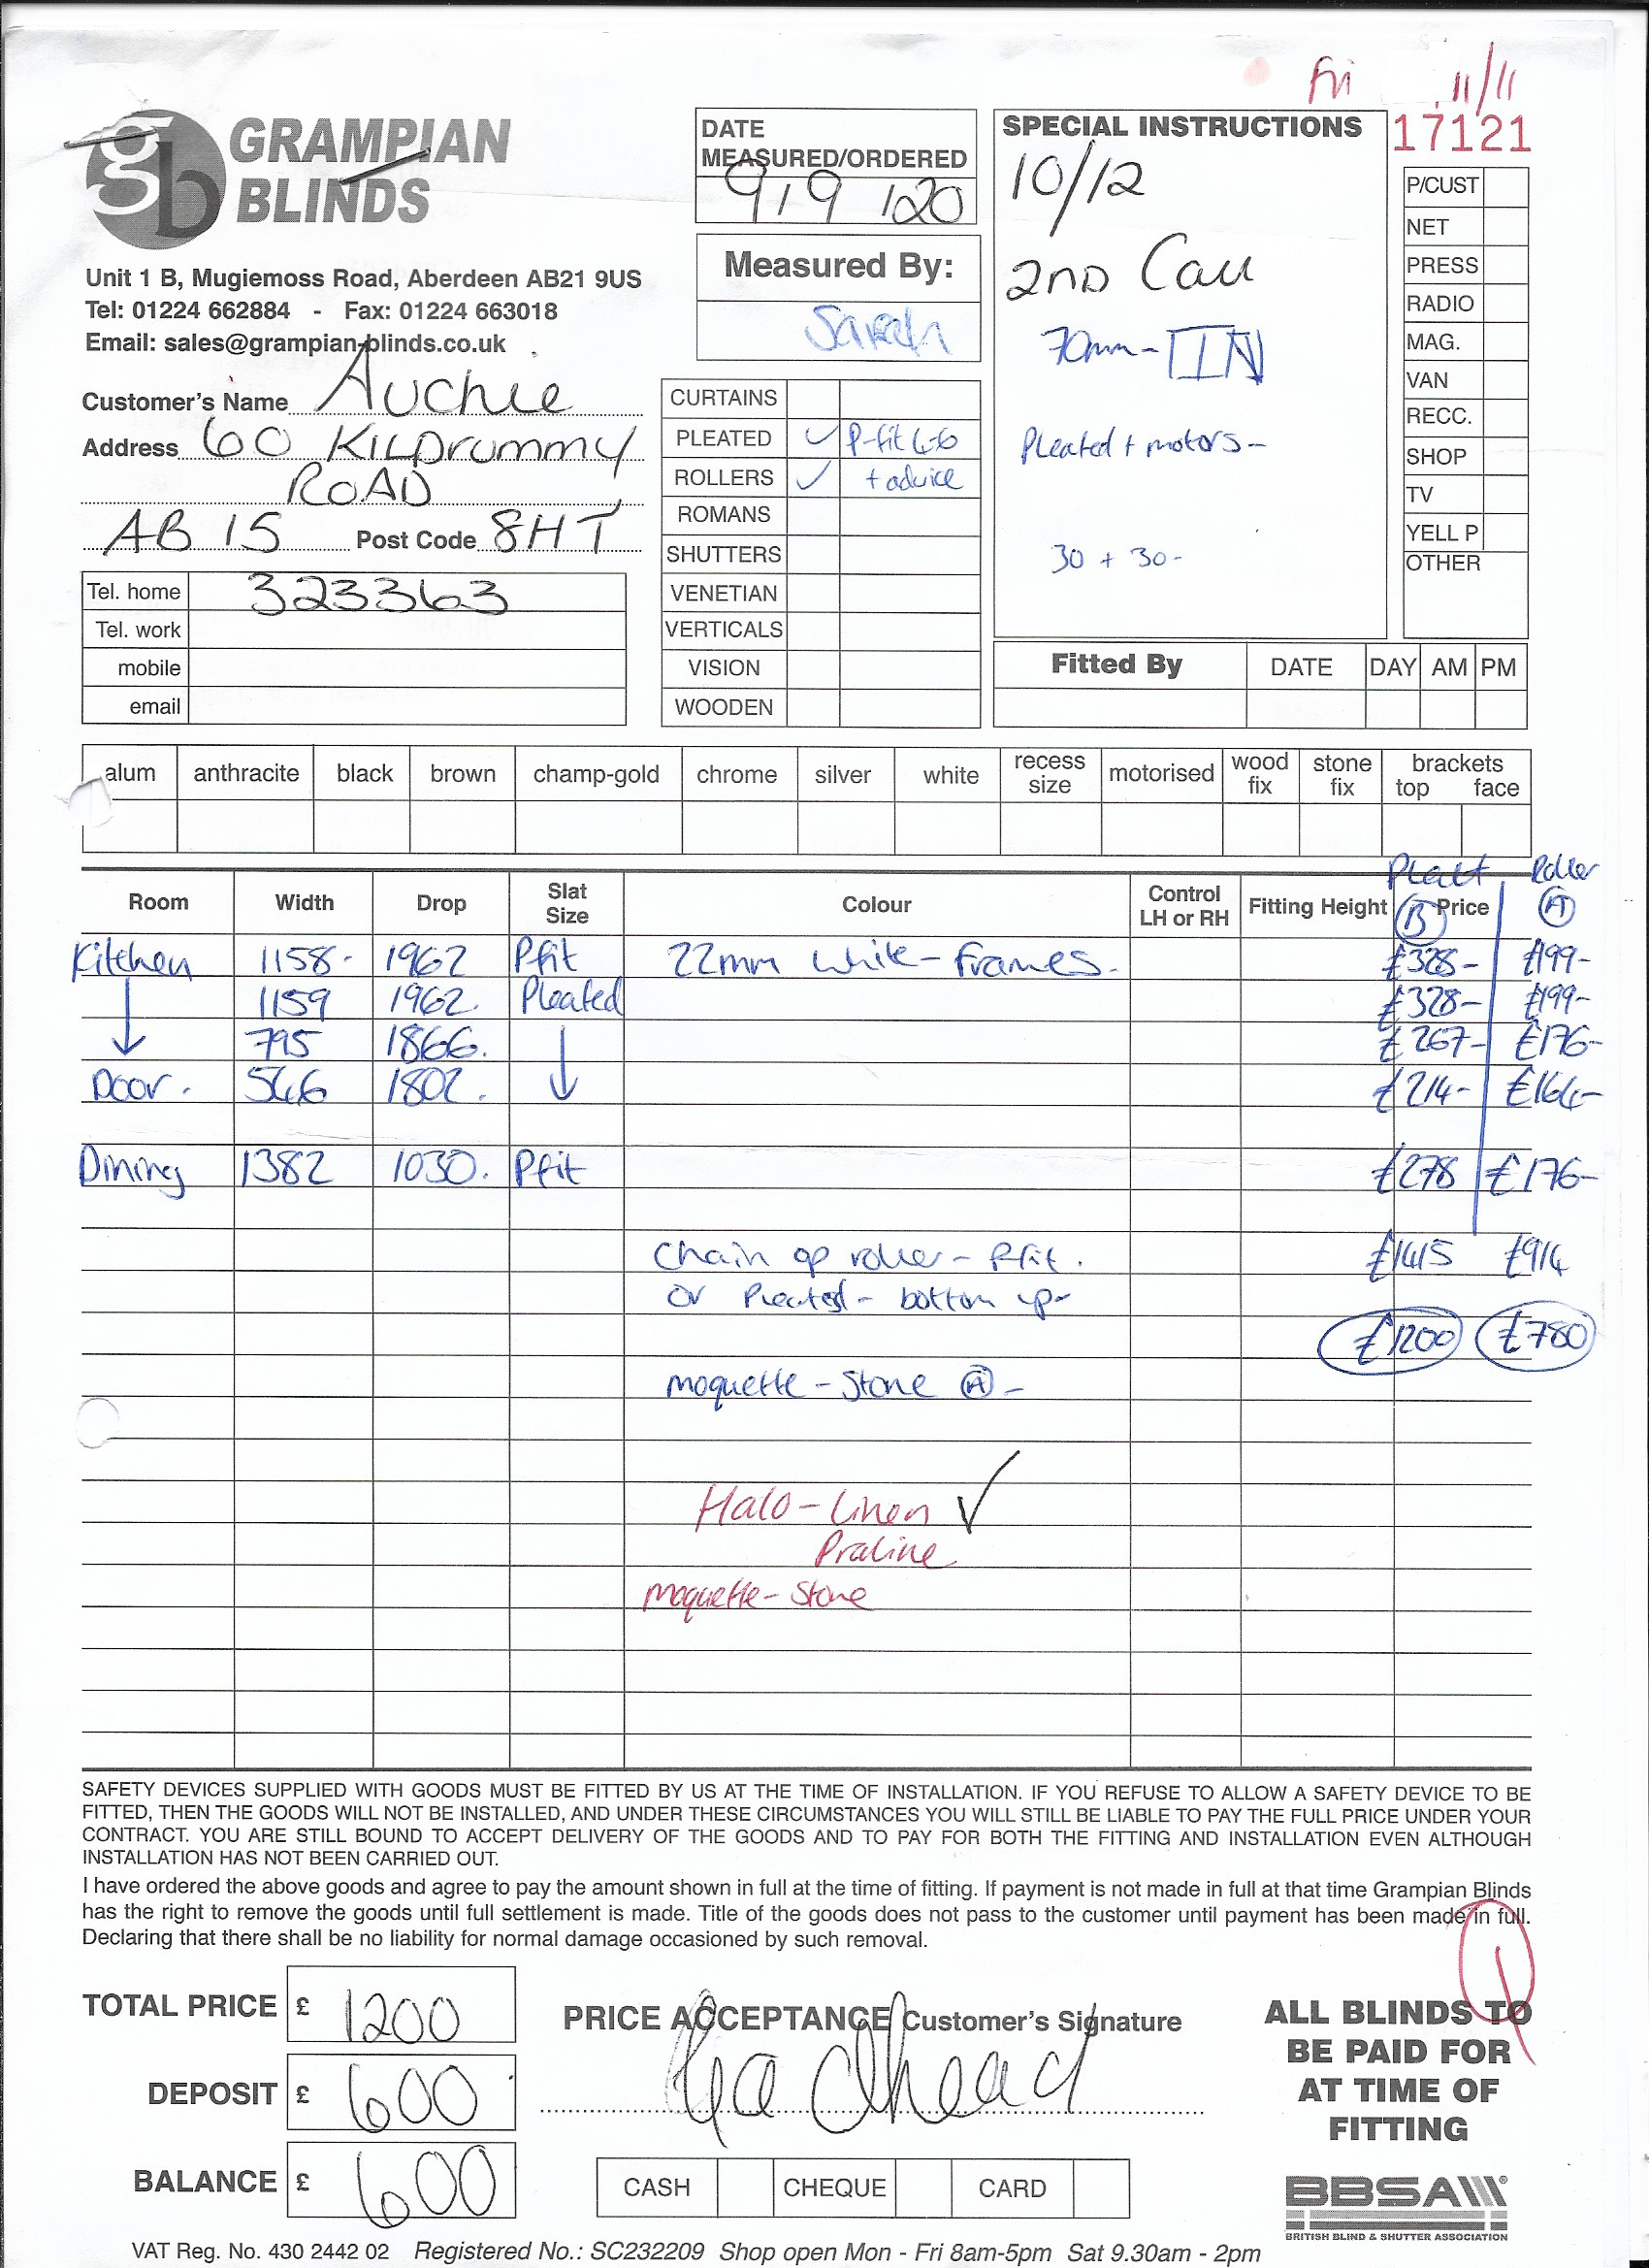 Fri 11/11
GRAMPIAN
BLINDS
gb
Unit 1 B, Mugiemoss Road, Aberdeen AB21 9US
Tel: 01224 662884 - Fax: 01224 663018
Email: sales@grampian-blinds.co.uk
DATE
MEASURED/ORDERED
9/9/20
Measured By:
Sarah
SPECIAL INSTRUCTIONS
10/12
2ND Call
70mm - IN
Pleated + motors -
30 + 30 -
17121
P/CUST
NET
PRESS
RADIO
MAG.
VAN
RECC.
SHOP
TV
YELL P
OTHER
Customer's Name Auchie
Address 60 KILDrummy
ROAD
AB 15 Post Code 8HT
Tel. home 323363
Tel. work
mobile
email
CURTAINS
PLEATED ✓ P-fit
ROLLERS ✓ + advice
ROMANS
SHUTTERS
VENETIAN
VERTICALS
VISION
WOODEN
Fitted By DATE DAY AM PM
alum anthracite black brown champ-gold chrome silver white recess size motorised wood fix stone fix brackets top face
Pleat Roller
Room Width Drop Slat Size Colour Control LH or RH Fitting Height (B) Price (A)
Kitchen 1158- 1962 Pfit 22mm white - frames. £328- £199-
1159 1962. Pleated £328- £199-
795 1866. £267- £176-
Door. 546 1802. £214- £164-
Dining 1382 1030. Pfit £278 £176-
Chain op roller - Pfit. £1415 £914
or Pleated - bottom up-
£1200 £780
moquette - Stone (A) -
Halo - Linen ✓
Praline
Moquette - Stone
SAFETY DEVICES SUPPLIED WITH GOODS MUST BE FITTED BY US AT THE TIME OF INSTALLATION. IF YOU REFUSE TO ALLOW A SAFETY DEVICE TO BE
FITTED, THEN THE GOODS WILL NOT BE INSTALLED, AND UNDER THESE CIRCUMSTANCES YOU WILL STILL BE LIABLE TO PAY THE FULL PRICE UNDER YOUR
CONTRACT. YOU ARE STILL BOUND TO ACCEPT DELIVERY OF THE GOODS AND TO PAY FOR BOTH THE FITTING AND INSTALLATION EVEN ALTHOUGH
INSTALLATION HAS NOT BEEN CARRIED OUT.
I have ordered the above goods and agree to pay the amount shown in full at the time of fitting. If payment is not made in full at that time Grampian Blinds
has the right to remove the goods until full settlement is made. Title of the goods does not pass to the customer until payment has been made in full.
Declaring that there shall be no liability for normal damage occasioned by such removal.
TOTAL PRICE £ 1200
DEPOSIT £ 600
BALANCE £ 600
PRICE ACCEPTANCE Customer's Signature
CASH CHEQUE CARD
ALL BLINDS TO
BE PAID FOR
AT TIME OF
FITTING
BBSA
BRITISH BLIND & SHUTTER ASSOCIATION
VAT Reg. No. 430 2442 02 Registered No.: SC232209 Shop open Mon - Fri 8am-5pm Sat 9.30am - 2pm